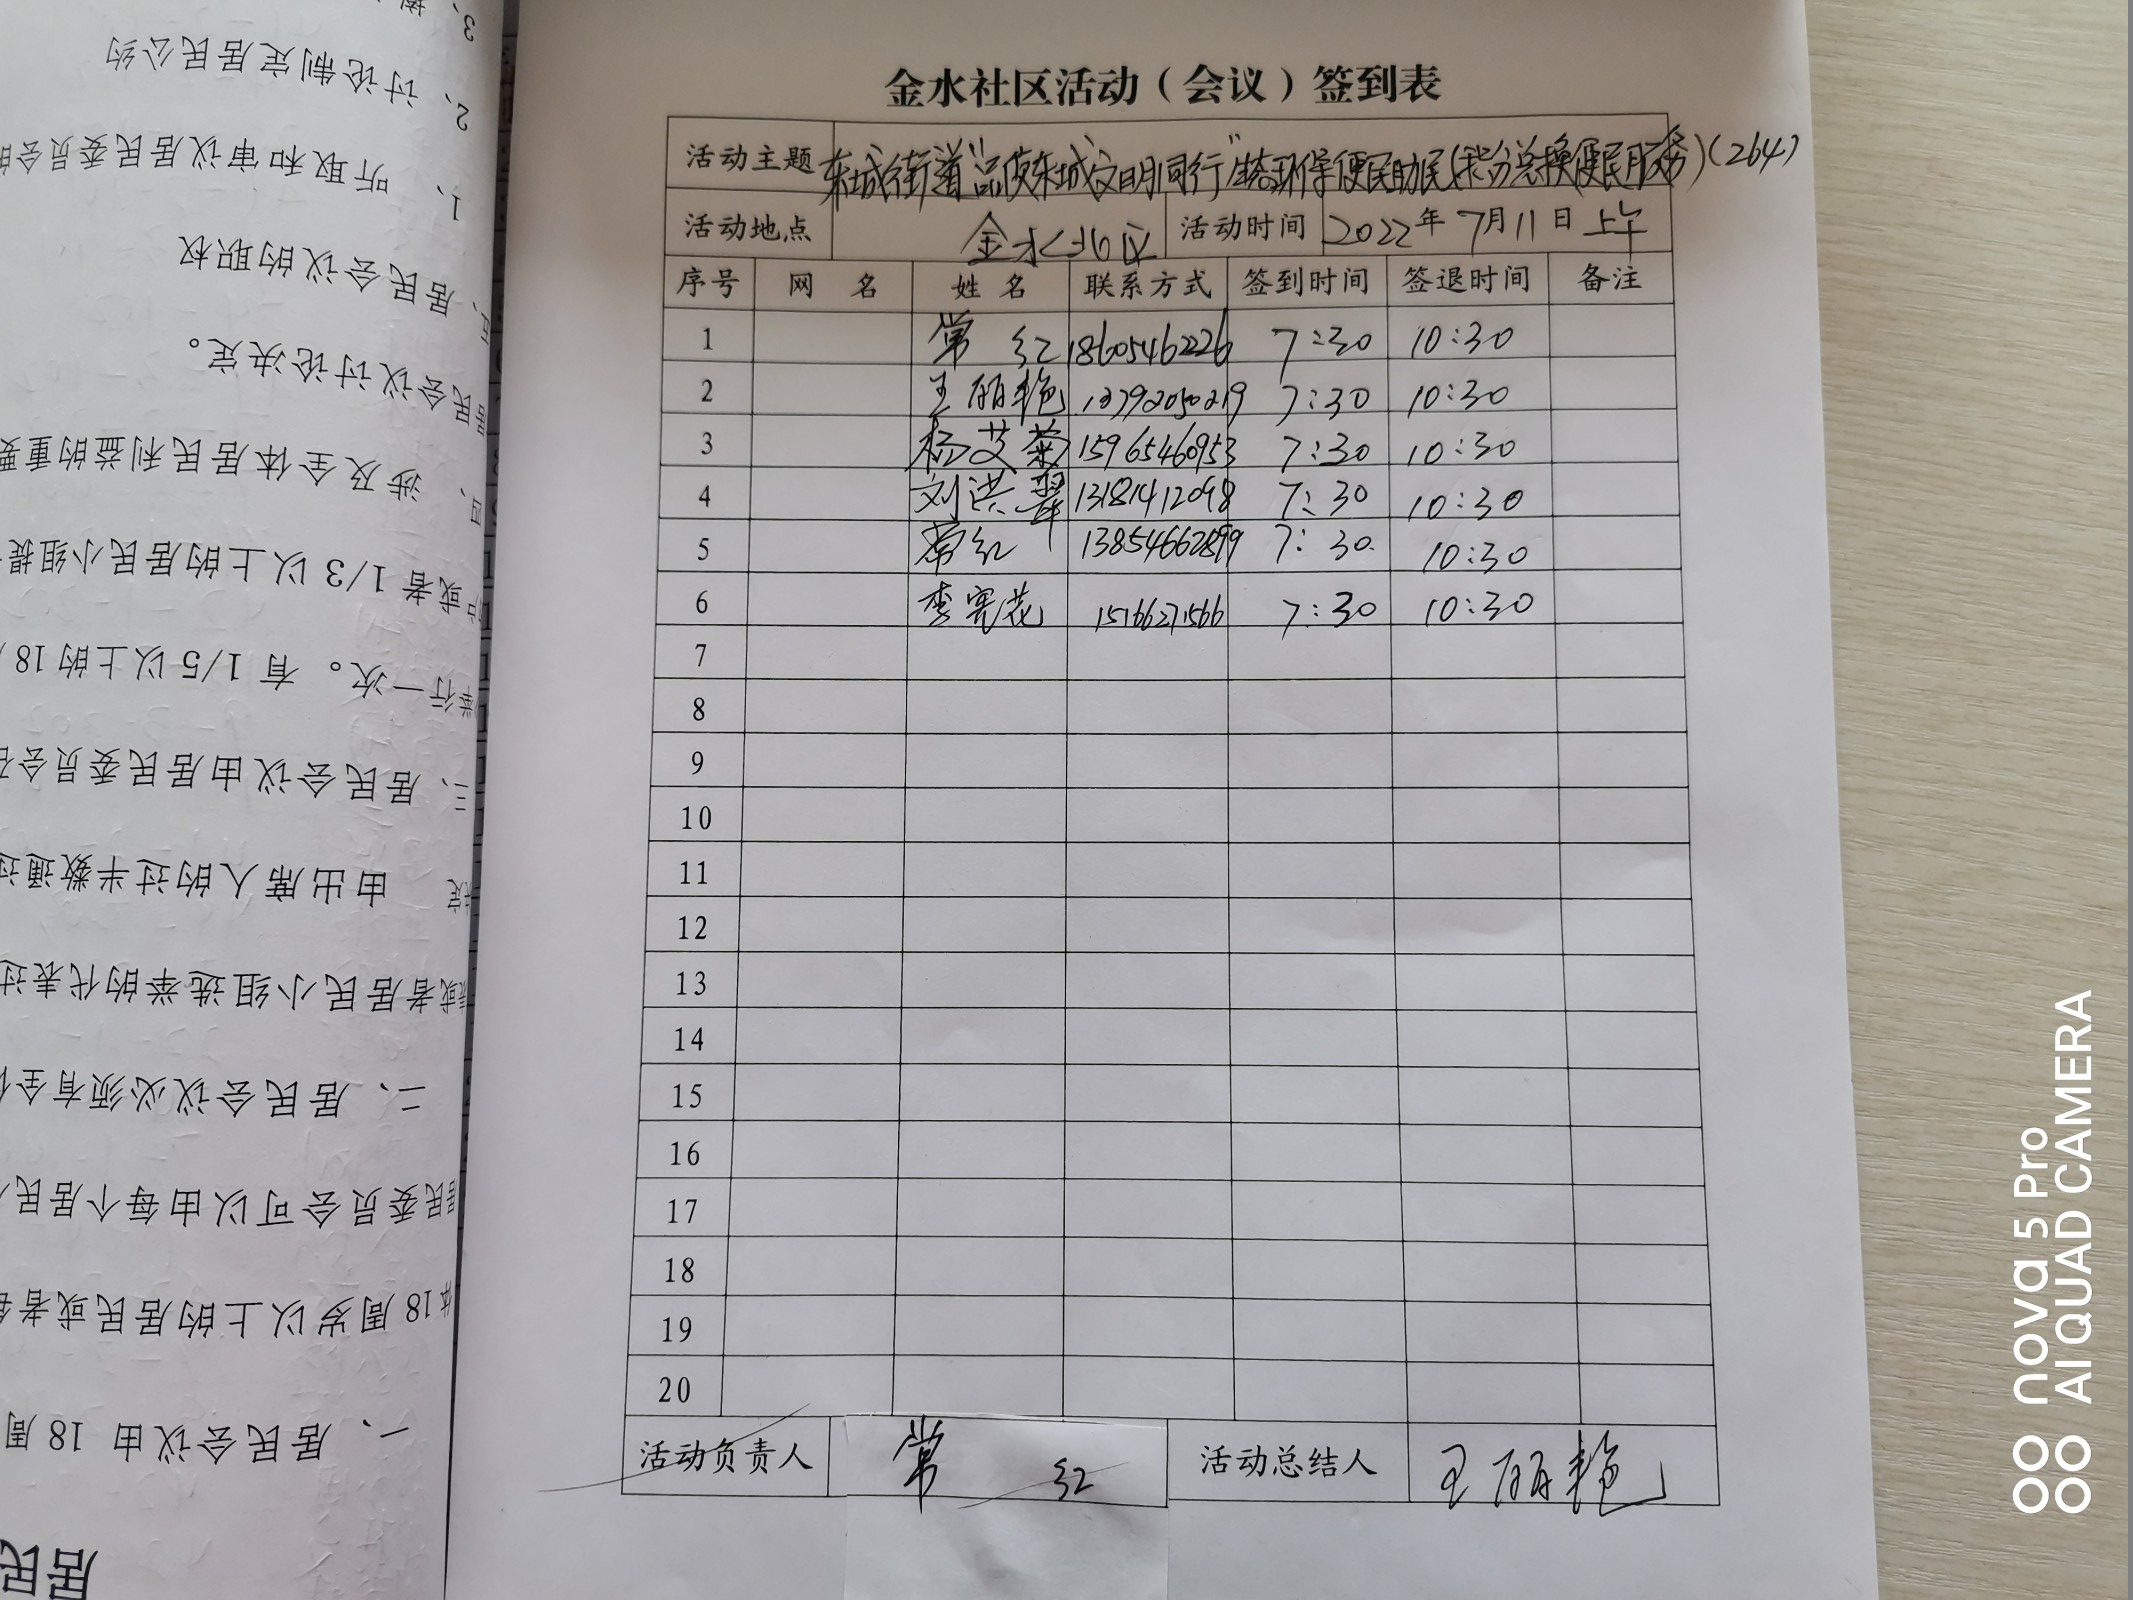 金水社区活动（会议）签到表
活动主题 东城街道“品质东城文明同行”生态环保便民助民(积分兑换便民服务)(264)
活动地点 金水北区 活动时间 2022年7月11日上午
序号 网名 姓名 联系方式 签到时间 签退时间 备注
1 常红 18605462226 7:30 10:30
2 王丽艳 13792050219 7:30 10:30
3 杨艾菊 15965460953 7:30 10:30
4 刘洪翠 13181412098 7:30 10:30
5 常红 13854662899 7:30 10:30
6 李宪花 1516627566 7:30 10:30
7
8
9
10
11
12
13
14
15
16
17
18
19
20
活动负责人 常红 活动总结人 王丽艳
居民
一、居民会议由 18 周
18 周岁以上的居民或者每
民委员会可以由每个居民小
二、居民会议必须有全体
或者居民小组选举的代表过
由出席人的过半数通过
三、居民会议由居民委员会召
举行一次。有 1/5 以上的 18
或者 1/3 以上的居民小组提
四、涉及全体居民利益的重要
居民会议讨论决定。
五、居民会议的职权
1、听取和审议居民委员会的
2、讨论制定居民公约
3、
nova 5 Pro
AI QUAD CAMERA